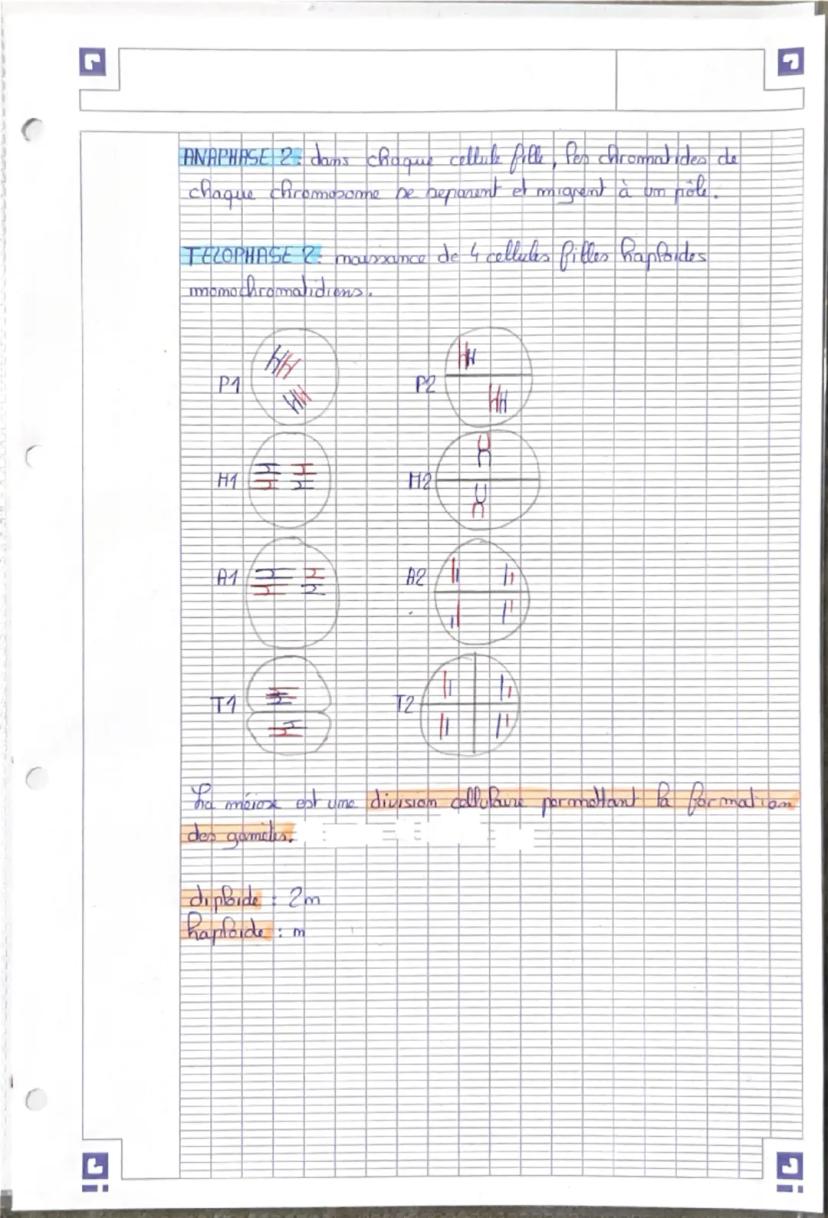 ANAPHASE 2: dans chaque cellule fille, les chromatides de
chaque chromosome se separent et migrent à un pôle.
TELOPHASE 2: naissance de 4 cellules filles haploides
monochromatidiens.
P1 P2
M1 M2
A1 A2
T1 T2
La méiose est une division cellulaire permettant la formation
des gamètes.
diploide : 2n
haploide : n